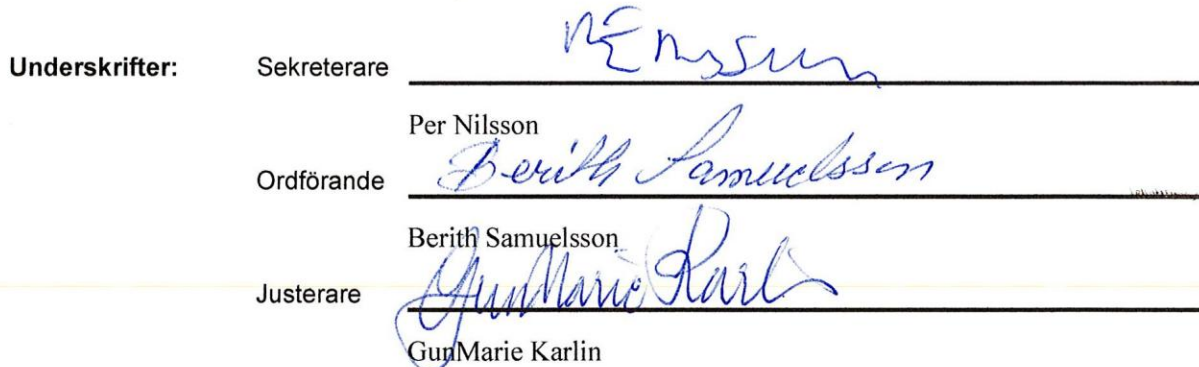 Underskrifter: Sekreterare
Per Nilsson
Ordförande Berith Samuelsson
Berith Samuelsson
Justerare GunMarie Karlin
GunMarie Karlin